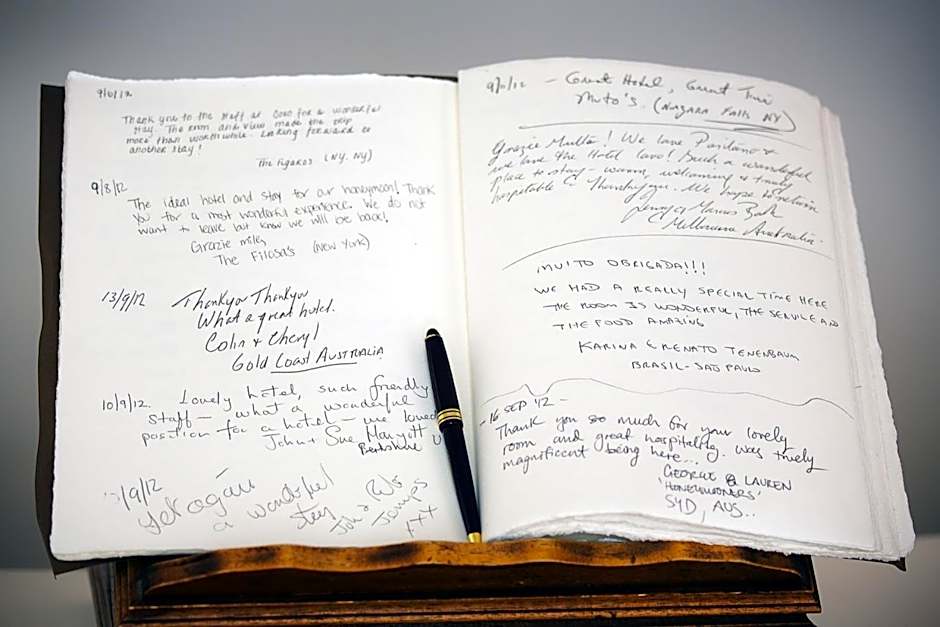 9/8/12
Thank you to the staff at Covo for a wonderful
stay. The room and view made the trip
more than worthwhile. Looking forward to
another stay!
The Figaros (NY, NY)
9/8/12
The ideal hotel and stay for our honeymoon! Thank
you for a most wonderful experience. We do not
want to leave but know we will be back!
Grazie mille,
The Filosa's (New York)
13/9/12 Thankyou Thankyou
What a great hotel.
Colin & Cheryl
Gold Coast AUSTRALIA
10/9/12. Lovely hotel, such friendly
staff - what a wonderful
position for a hotel - we loved
John + Sue
Berkshire U
/9/12
Yet again
a wonderful
stay
John &
xxx
- Great Hotel, Great Time
(Niagara Falls NY)
Grazie Multa! We love Positano &
we love the Hotel Covo! Such a wonderful
place to stay - warm, welcoming & truly
hospitable. Thankyou. We hope to return
Melbourne Australia.
MUITO OBRIGADA!!!
WE HAD A REALLY SPECIAL TIME HERE
THE ROOM IS WONDERFUL, THE SERVICE AND
THE FOOD AMAZING
KARINA & RENATO TENENBAUM
BRASIL - SAO PAULO
- 16 SEP '12 -
Thank you so much for your lovely
room and great hospitality. was truely
magnificent being here...
GEORGE & LAUREN
'HONEYMOONERS'
SYD, AUS..